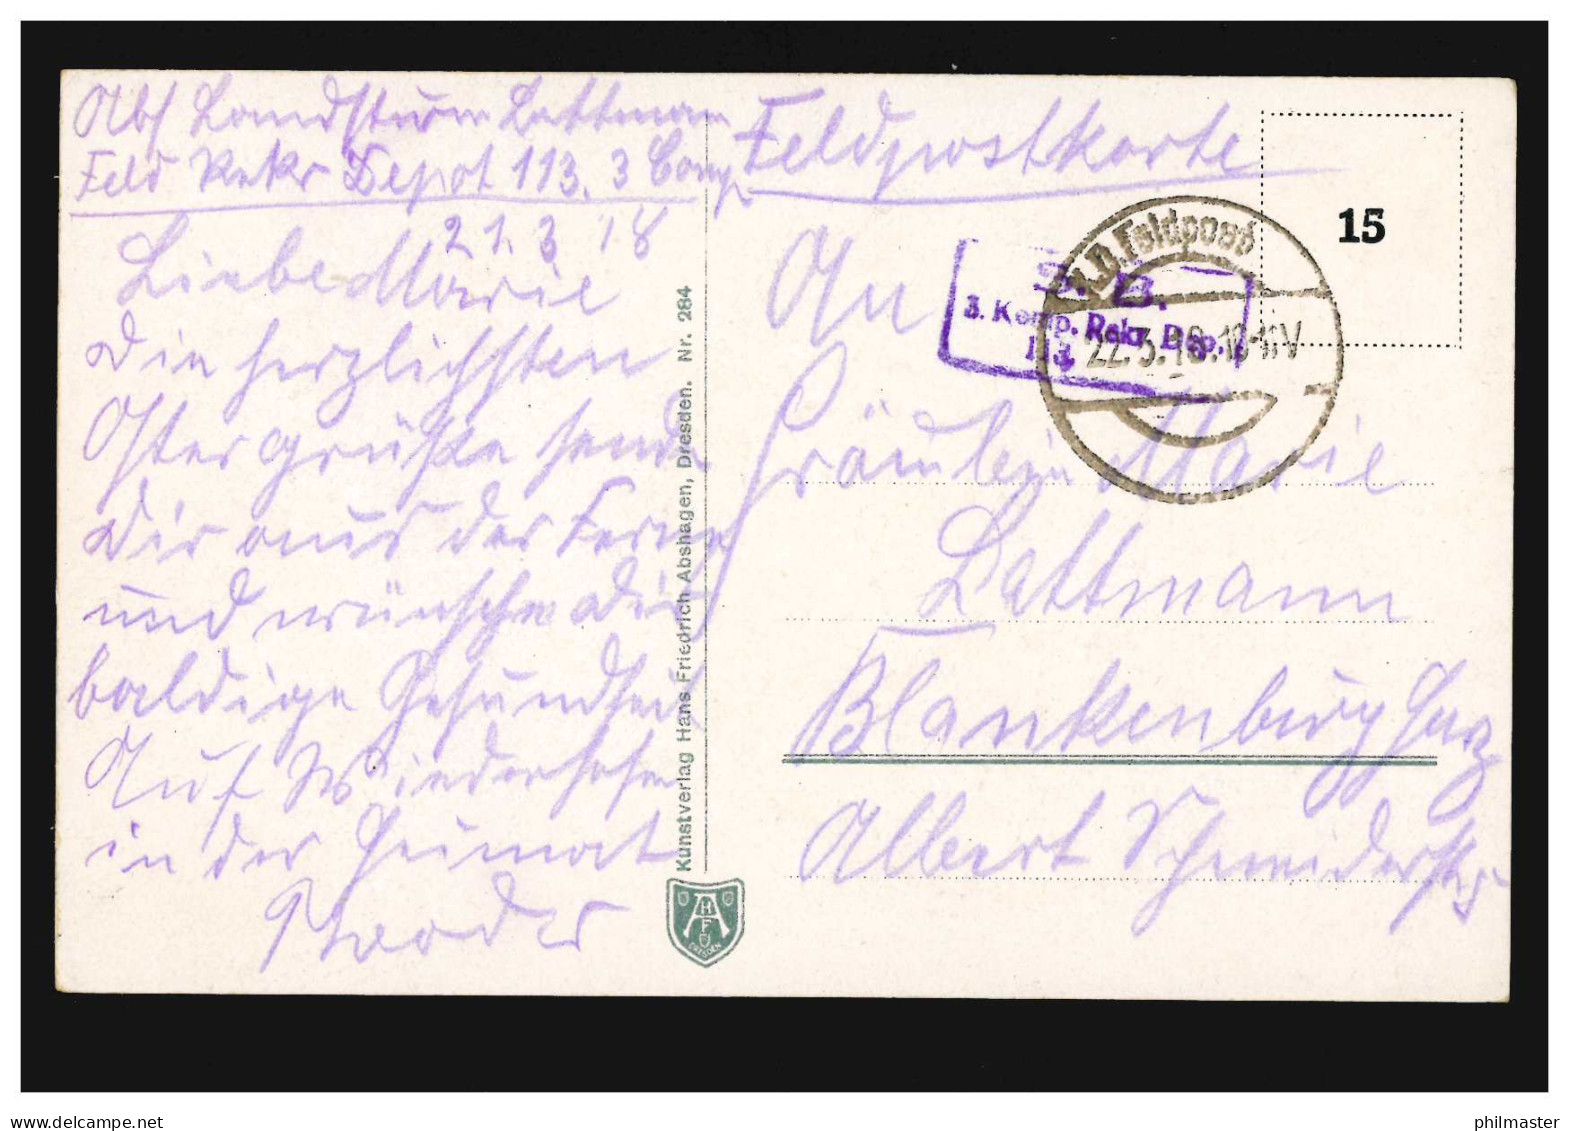 Abs Landsturm Lattmann
Feld Rekr Depot 113. 3 Comp.
21.3 18
Liebe Marie
Die herzlichsten
Ostergrüße sende
Dir aus der Ferne
und wünsche Dir
baldige Gesundheit
Auf Wiedersehen
in der Heimat
Kunstverlag Hans Friedrich Abshagen, Dresden. Nr. 284
AHF
DRESDEN
Feldpostkarte
15
K.D. Feldpost
22.3.18.
S. B.
3. Komp. Rekr. Dep.
113.
An
Fräulein Marie
Lattmann
Blankenburg Harz
Albert Schneiderstr
delcampe.net
philmaster